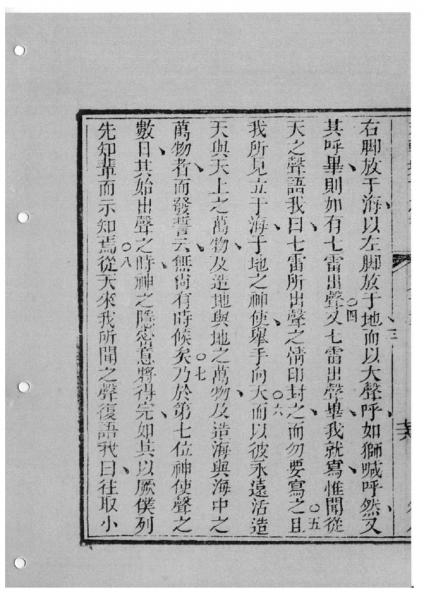 右脚放于海以左脚放于地而以大聲呼三如獅喊呼然又
其呼畢則如有七雷出聲〇四又七雷出聲畢我就寫惟聞從
天之聲語我曰七雷所出聲之情印封之而勿要寫之〇五且
我所見立于海于地之神使舉手向天〇六而以彼永遠活造
天與天上之萬物及造地與地之萬物及造海與海中之
萬物者而發誓云無尚有時候矣〇七乃於第七位神使聲之
數日其始出聲之時神之隱密意將得完如其以厥僕列
先知輩而示知焉〇八從天來我所聞之聲復語我曰往取小